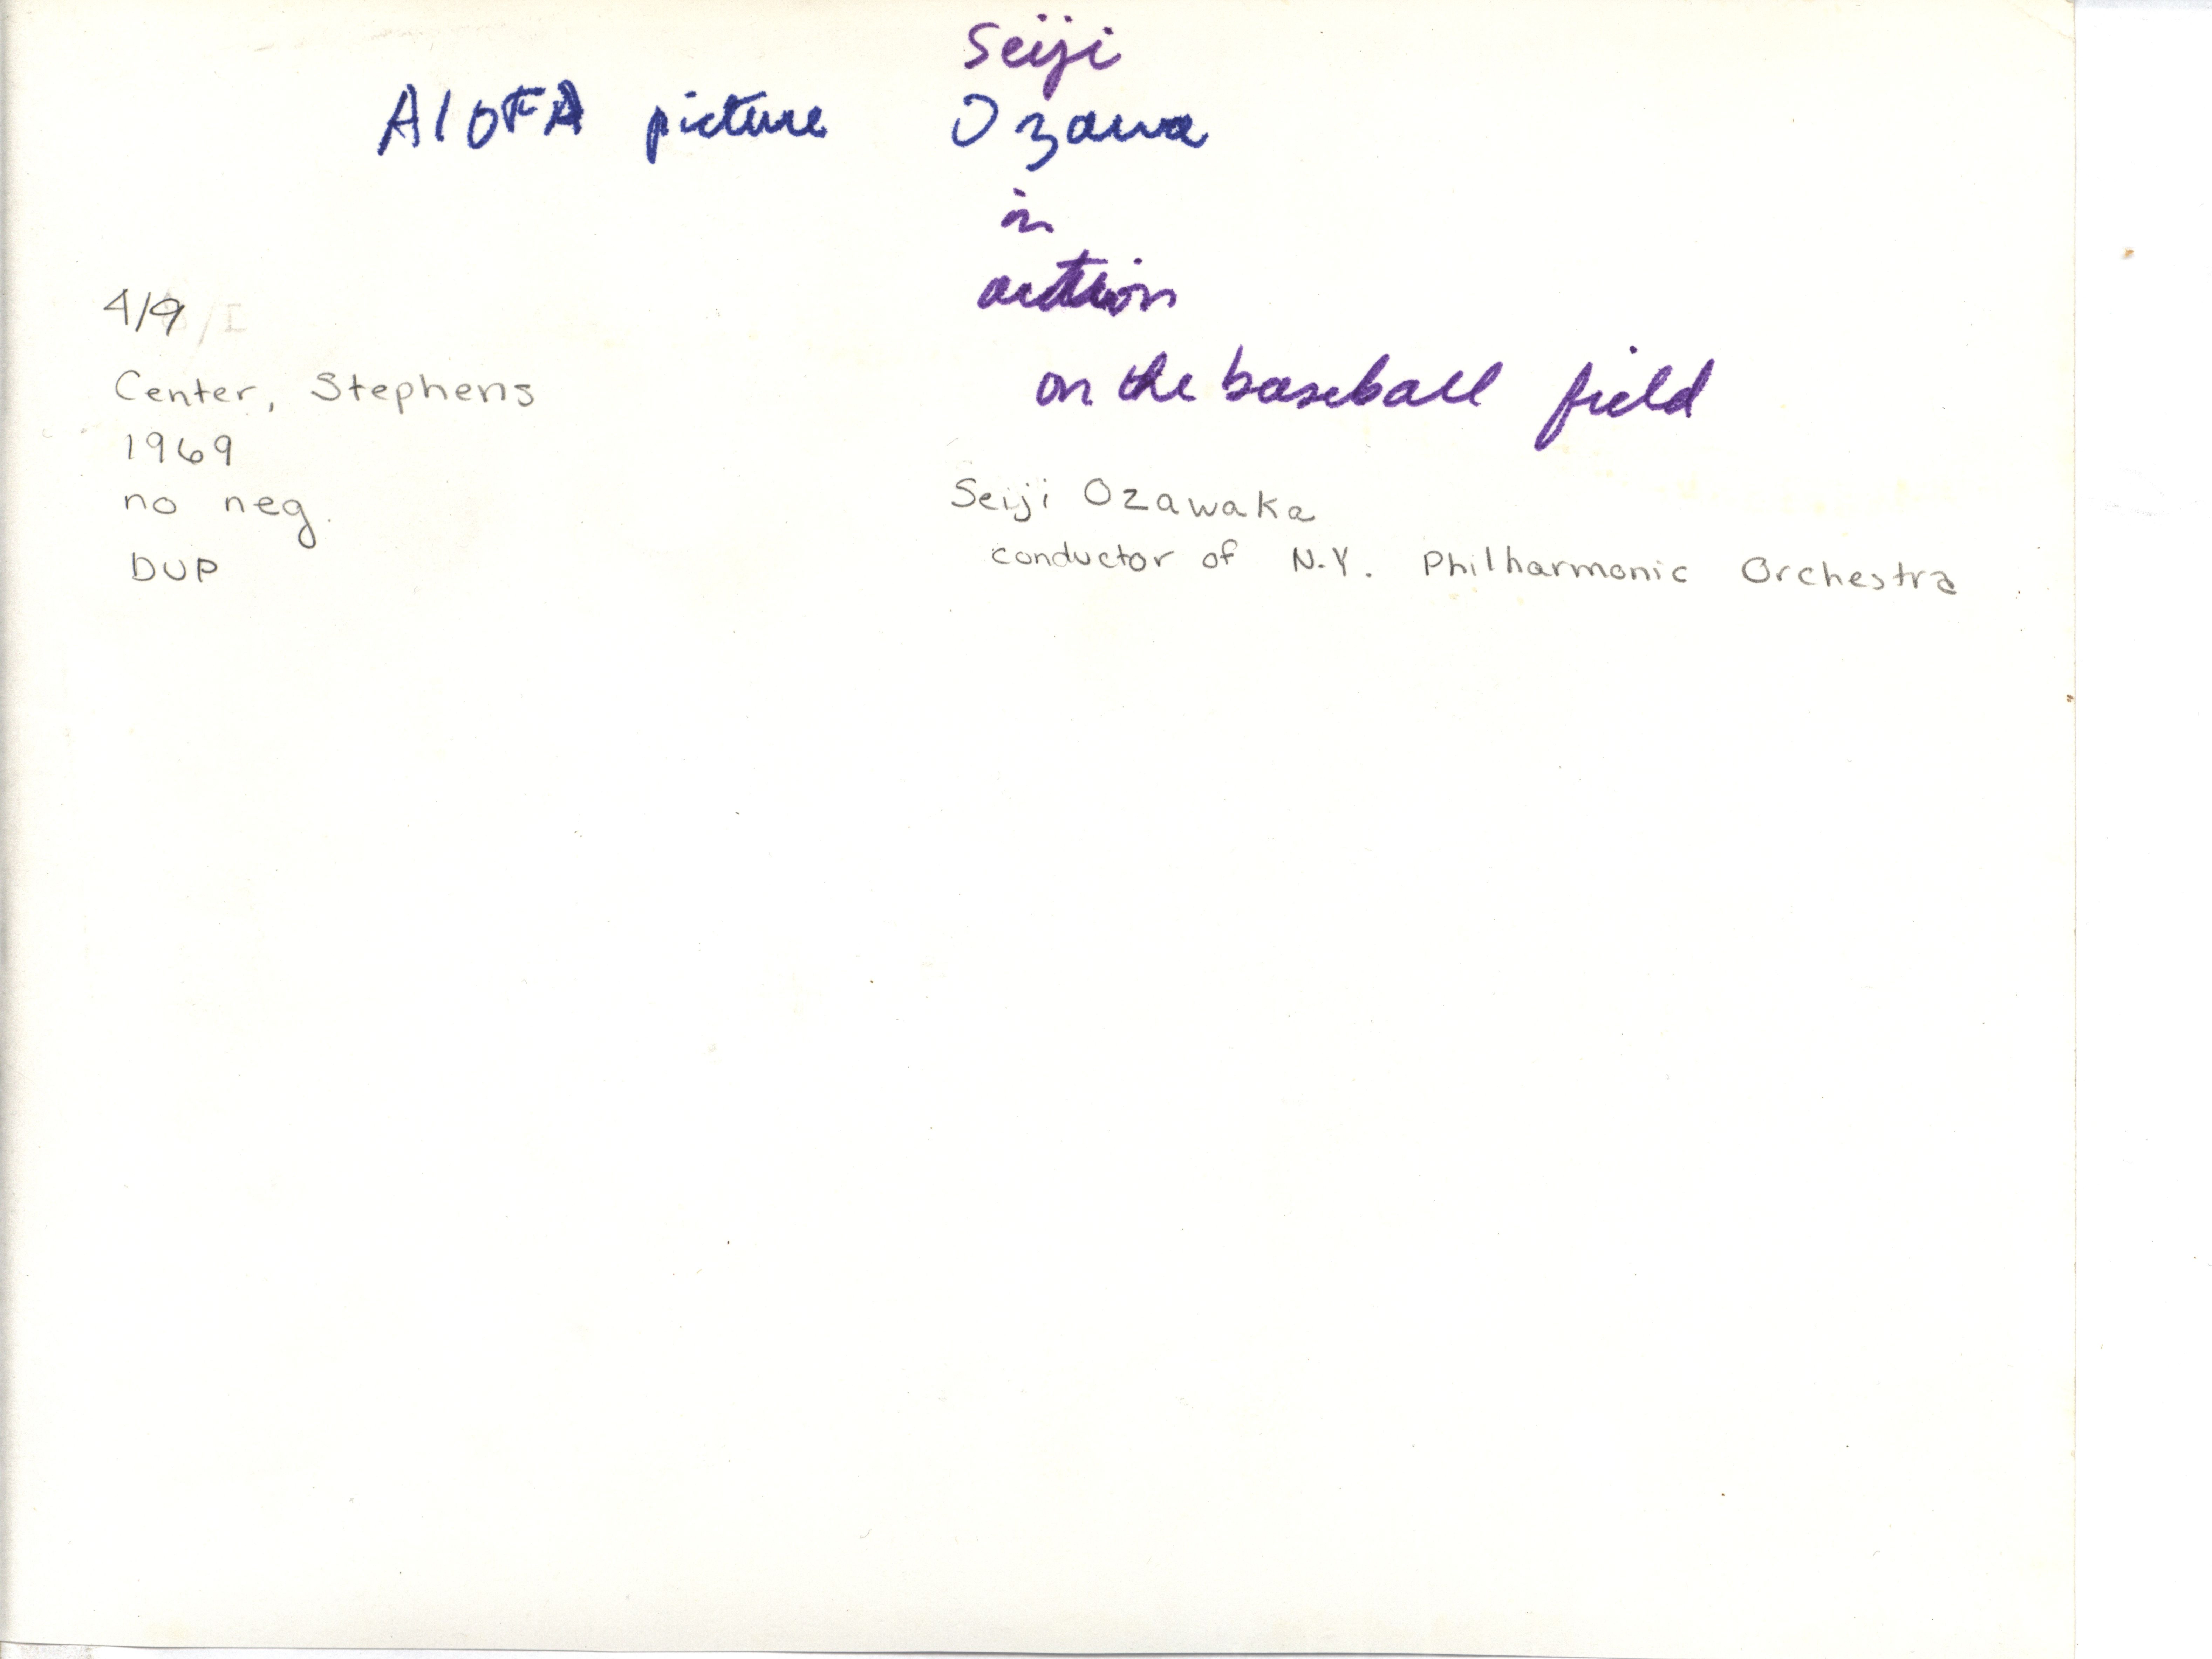 Seiji
AIOFA picture Ozawa
in
action
on the baseball field
4/9
Center, Stephens
1969
no neg.
DUP
Seiji Ozawaka
conductor of N.Y. Philharmonic Orchestra